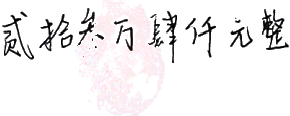 贰拾叁万肆仟元整